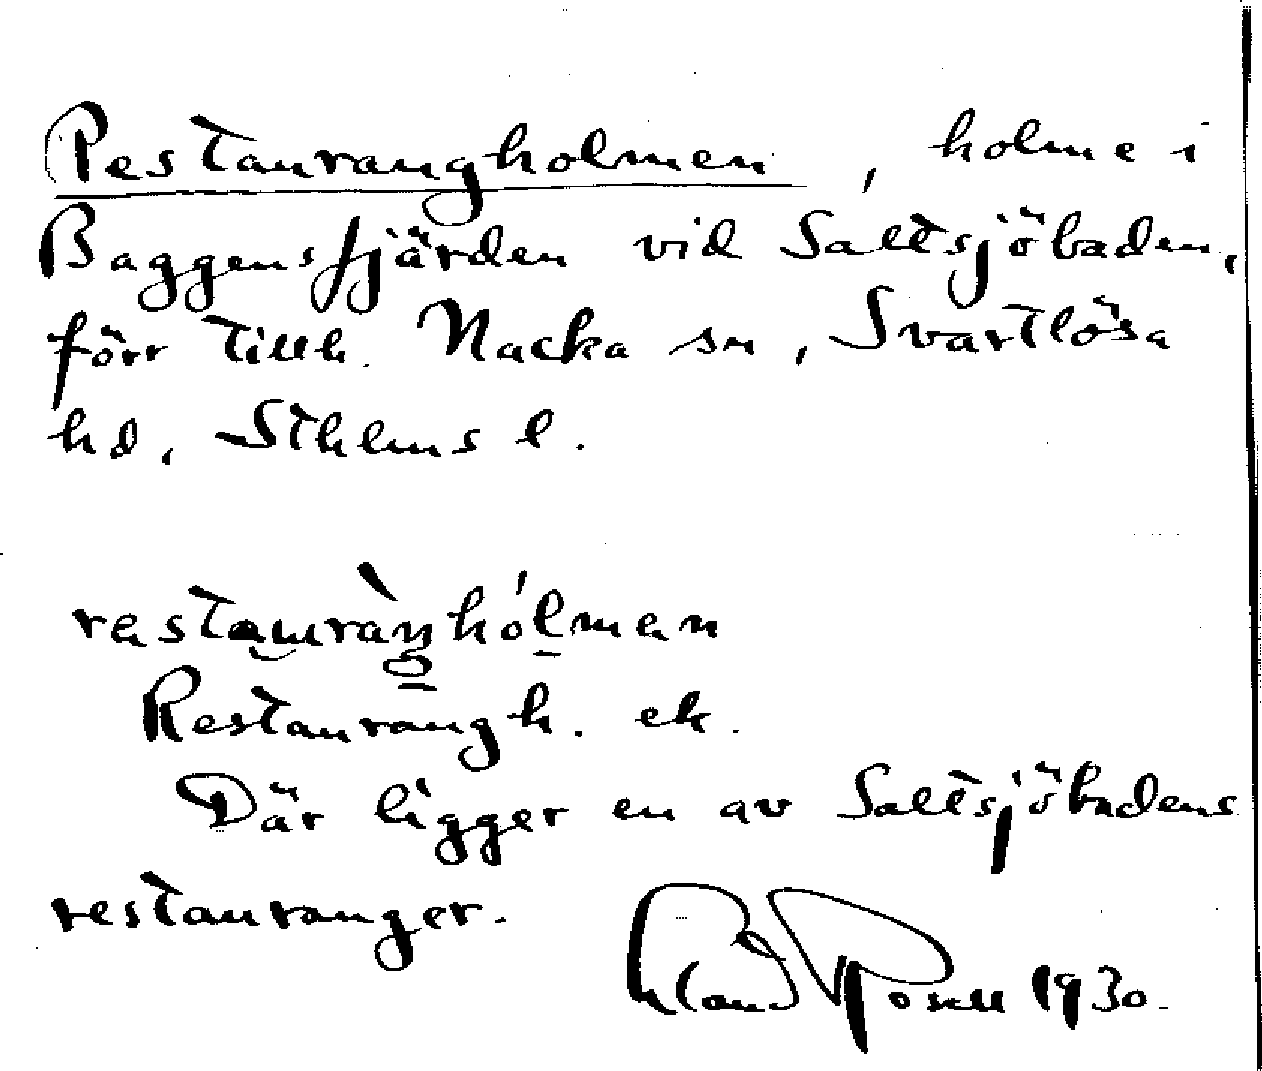 Restaurangholmen, holme i
Baggensfjärden vid Saltsjöbaden,
förr tillh. Nacka sn, Svartlösa
hd, Sthlms l.
restauranghólmen
Restaurangh. ek.
Där ligger en av Saltsjöbadens
restauranger.
1930.